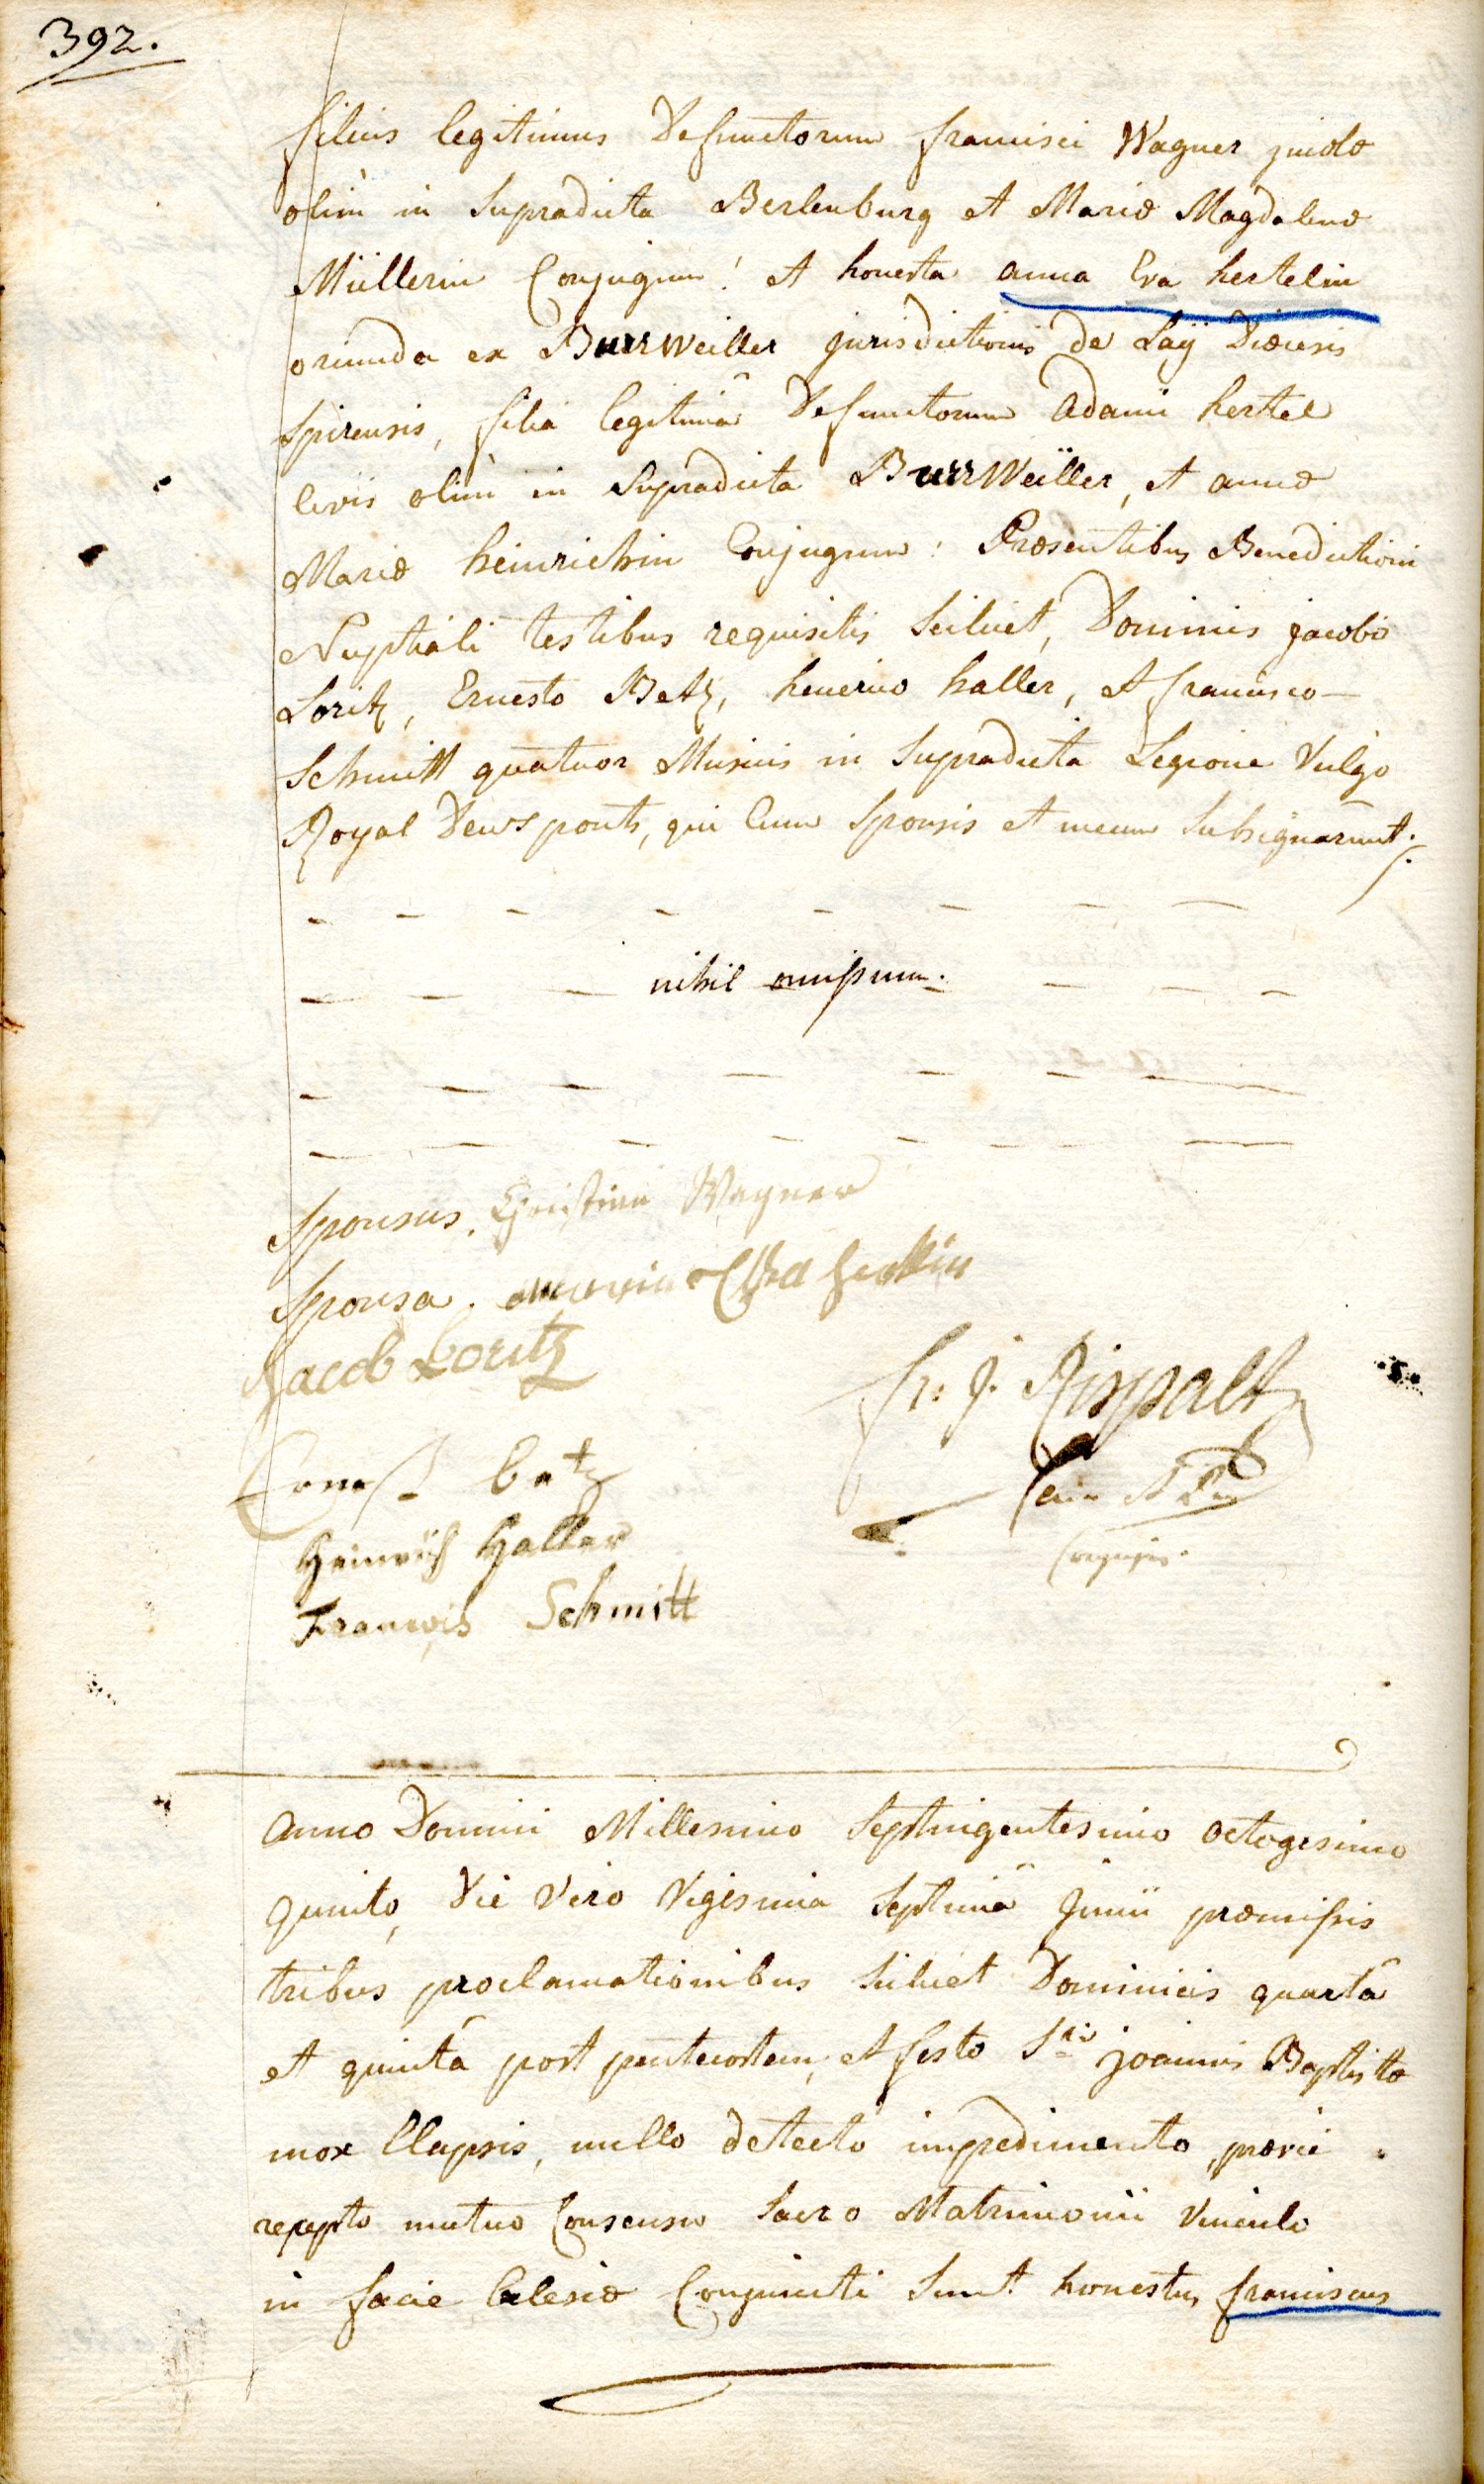 392.
filius legitimus Defunctorum francisci Wagner
olim in Supradicta Berlenburg et Mariæ Magdalenæ
Müllerin Conjugum! et honesta anna Eva hertelin
oriunda ex Burrweiller jurisdictionis de Laÿ Diœcesis
Spirensis, filia legitima Defunctorum adami hertel
civis olim in Supradicta BurrWeiller, et annæ
Mariæ heinrichin Conjugum: Præsentibus Benedictioni
Nuptiali testibus requisitis Scilicet, Dominis jacobo
Loritz, Ernesto Betz, henrico haller, et francisco —
Schmitt quatuor Musicis in Supradicta Legione Vulgo
Royal Deuxponts, qui Cum Sponsis et mecum Subsignarunt ./.
nihil omissum.
Sponsus. Christian Wagner
Sponsa. Eva
Jacob Loritz
fr: J. Rispalt
Ernest betz
Heinrich Haller
François Schmitt
anno Domini Millesimo Septingentesimo octogesimo
quinto, Die Vero Vigesima Septimâ Junii præmissis
tribus proclamationibus Scilicet Dominicis quartâ
et quintâ post pentecostem, et festo Sti joannis Baptistæ
mox Elapsis, nullo detecto impedimento,
recepto mutuo Consensu Sacro Matrimonii Vinculo
in facie Eclesiæ Conjuncti Sunt honestus franciscus